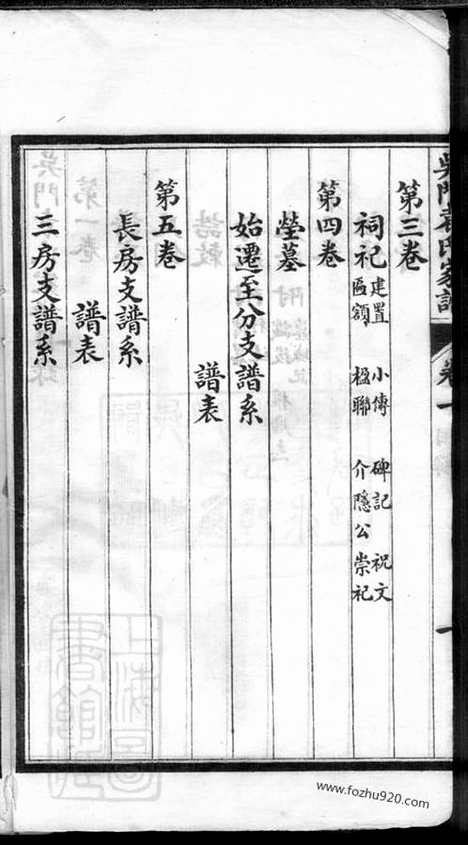 吳門袁氏家譜 卷一 目錄 一
第三卷
祠祀 建置 小傳 碑記 祝文
匾額 楹聯 介隱公崇祀
第四卷
塋墓
始遷至分支譜系
譜表
第五卷
長房支譜系
譜表
三房支譜系
上海圖書館藏
www.fozhu920.com